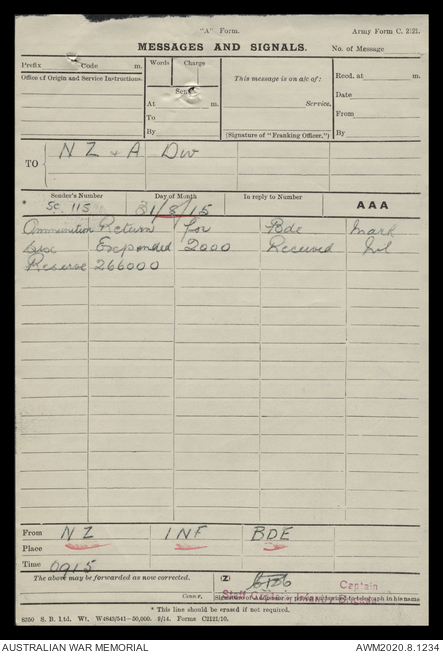 "A" Form. Army Form C. 2121.
MESSAGES AND SIGNALS. No. of Message
Prefix Code m. Words Charge This message is on a/c of: Recd. at m.
Office of Origin and Service Instructions. Sent Service. Date
At m. From
To
By (Signature of "Franking Officer.") By
TO NZ & A Div
Sender's Number Day of Month In reply to Number AAA
* SC 115 31/8/15
Ammunition Return for Bde Mark
Expended 2000 Received Nil
Reserve 266000
From NZ INF BDE
Place
Time 0915
The above may be forwarded as now corrected. (Z) Captain
Censor. Signature of Addressor or person authorised to telegraph in his name
* This line should be erased if not required.
8350 S. B. Ltd. Wt. W4843/541—50,000. 9/14. Forms C2121/10.
AUSTRALIAN WAR MEMORIAL AWM2020.8.1234